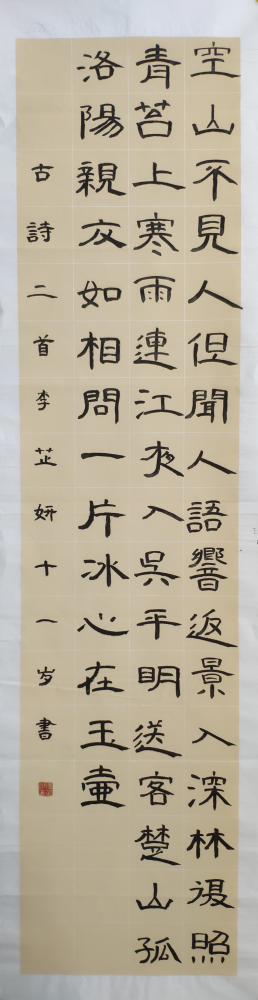 空山不見人但聞人語響返景入深林復照
青苔上寒雨連江夜入吳平明送客楚山孤
洛陽親友如相問一片冰心在玉壺
古詩二首李芷妍十一岁書